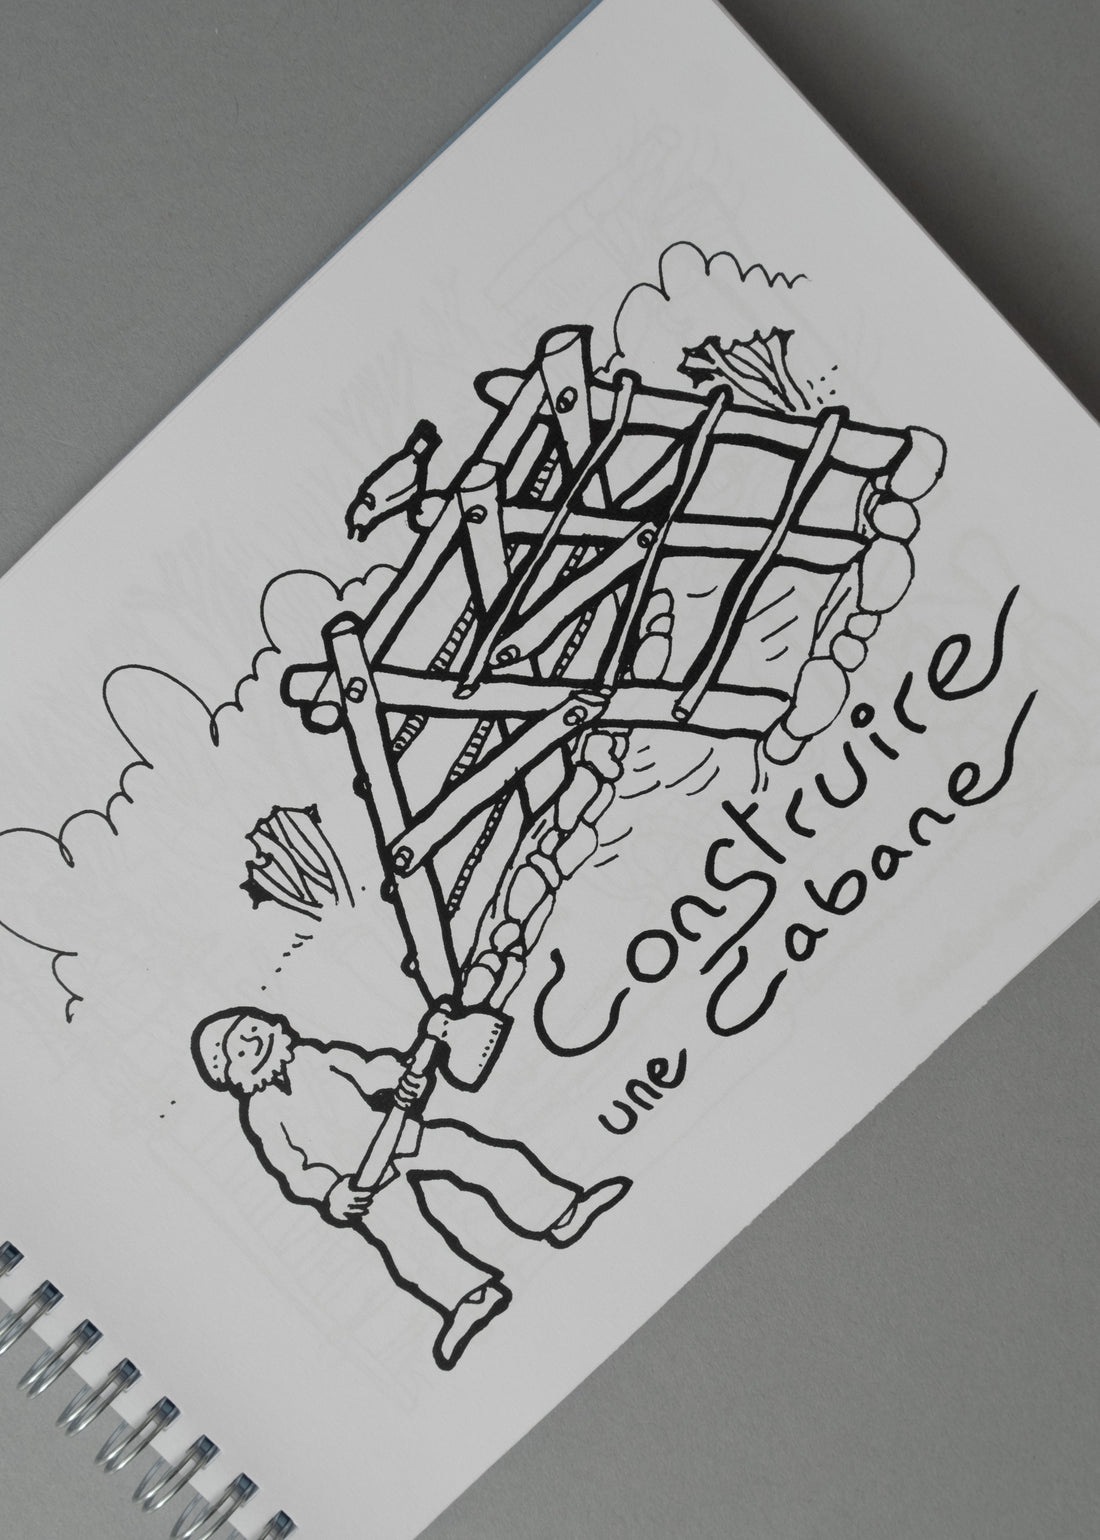 Construire
une Cabane